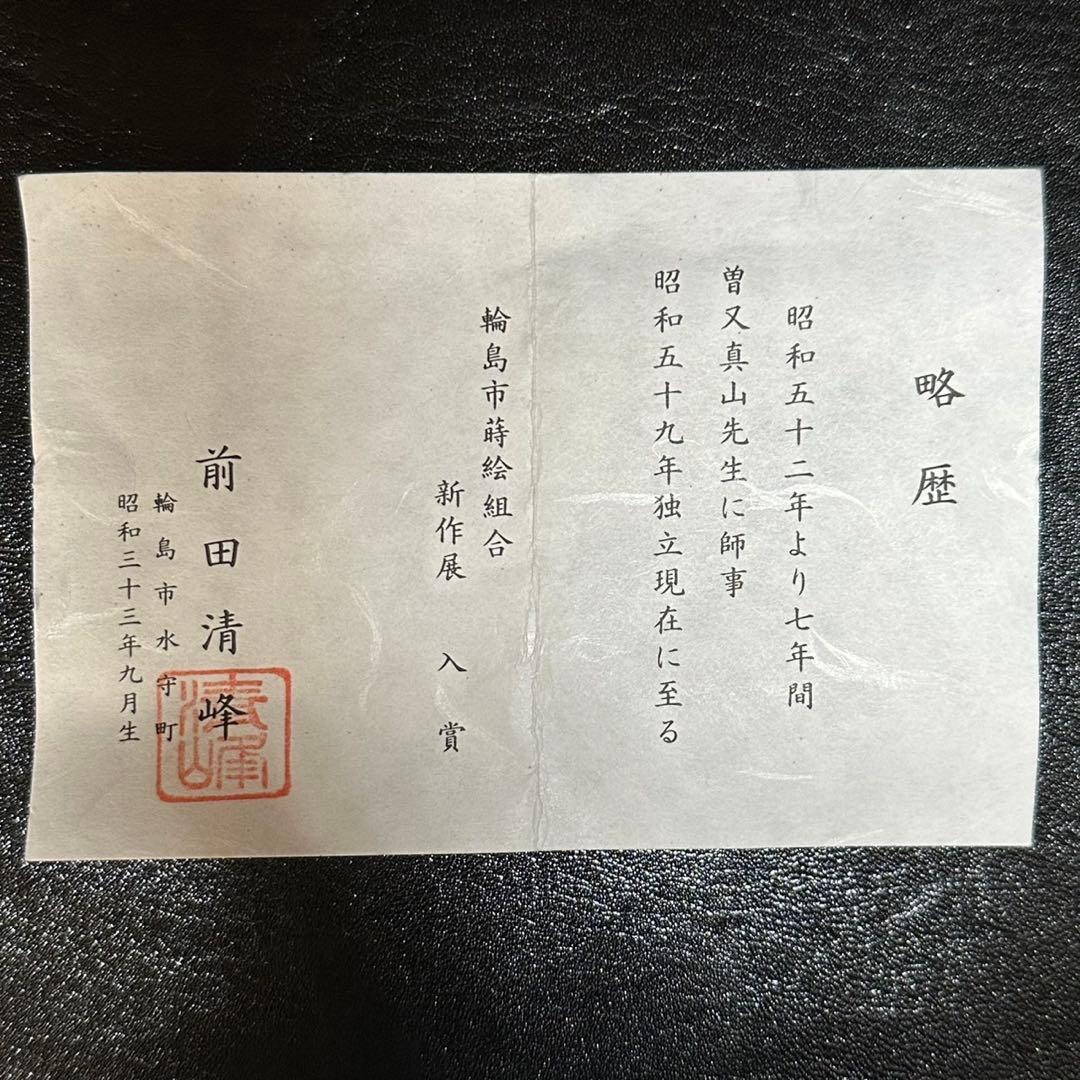 略歴
昭和五十二年より七年間
曽又真山先生に師事
昭和五十九年独立現在に至る
輪島市蒔絵組合
新作展 入賞
前田清峰
輪島市水守町
昭和三十三年九月生
清峰